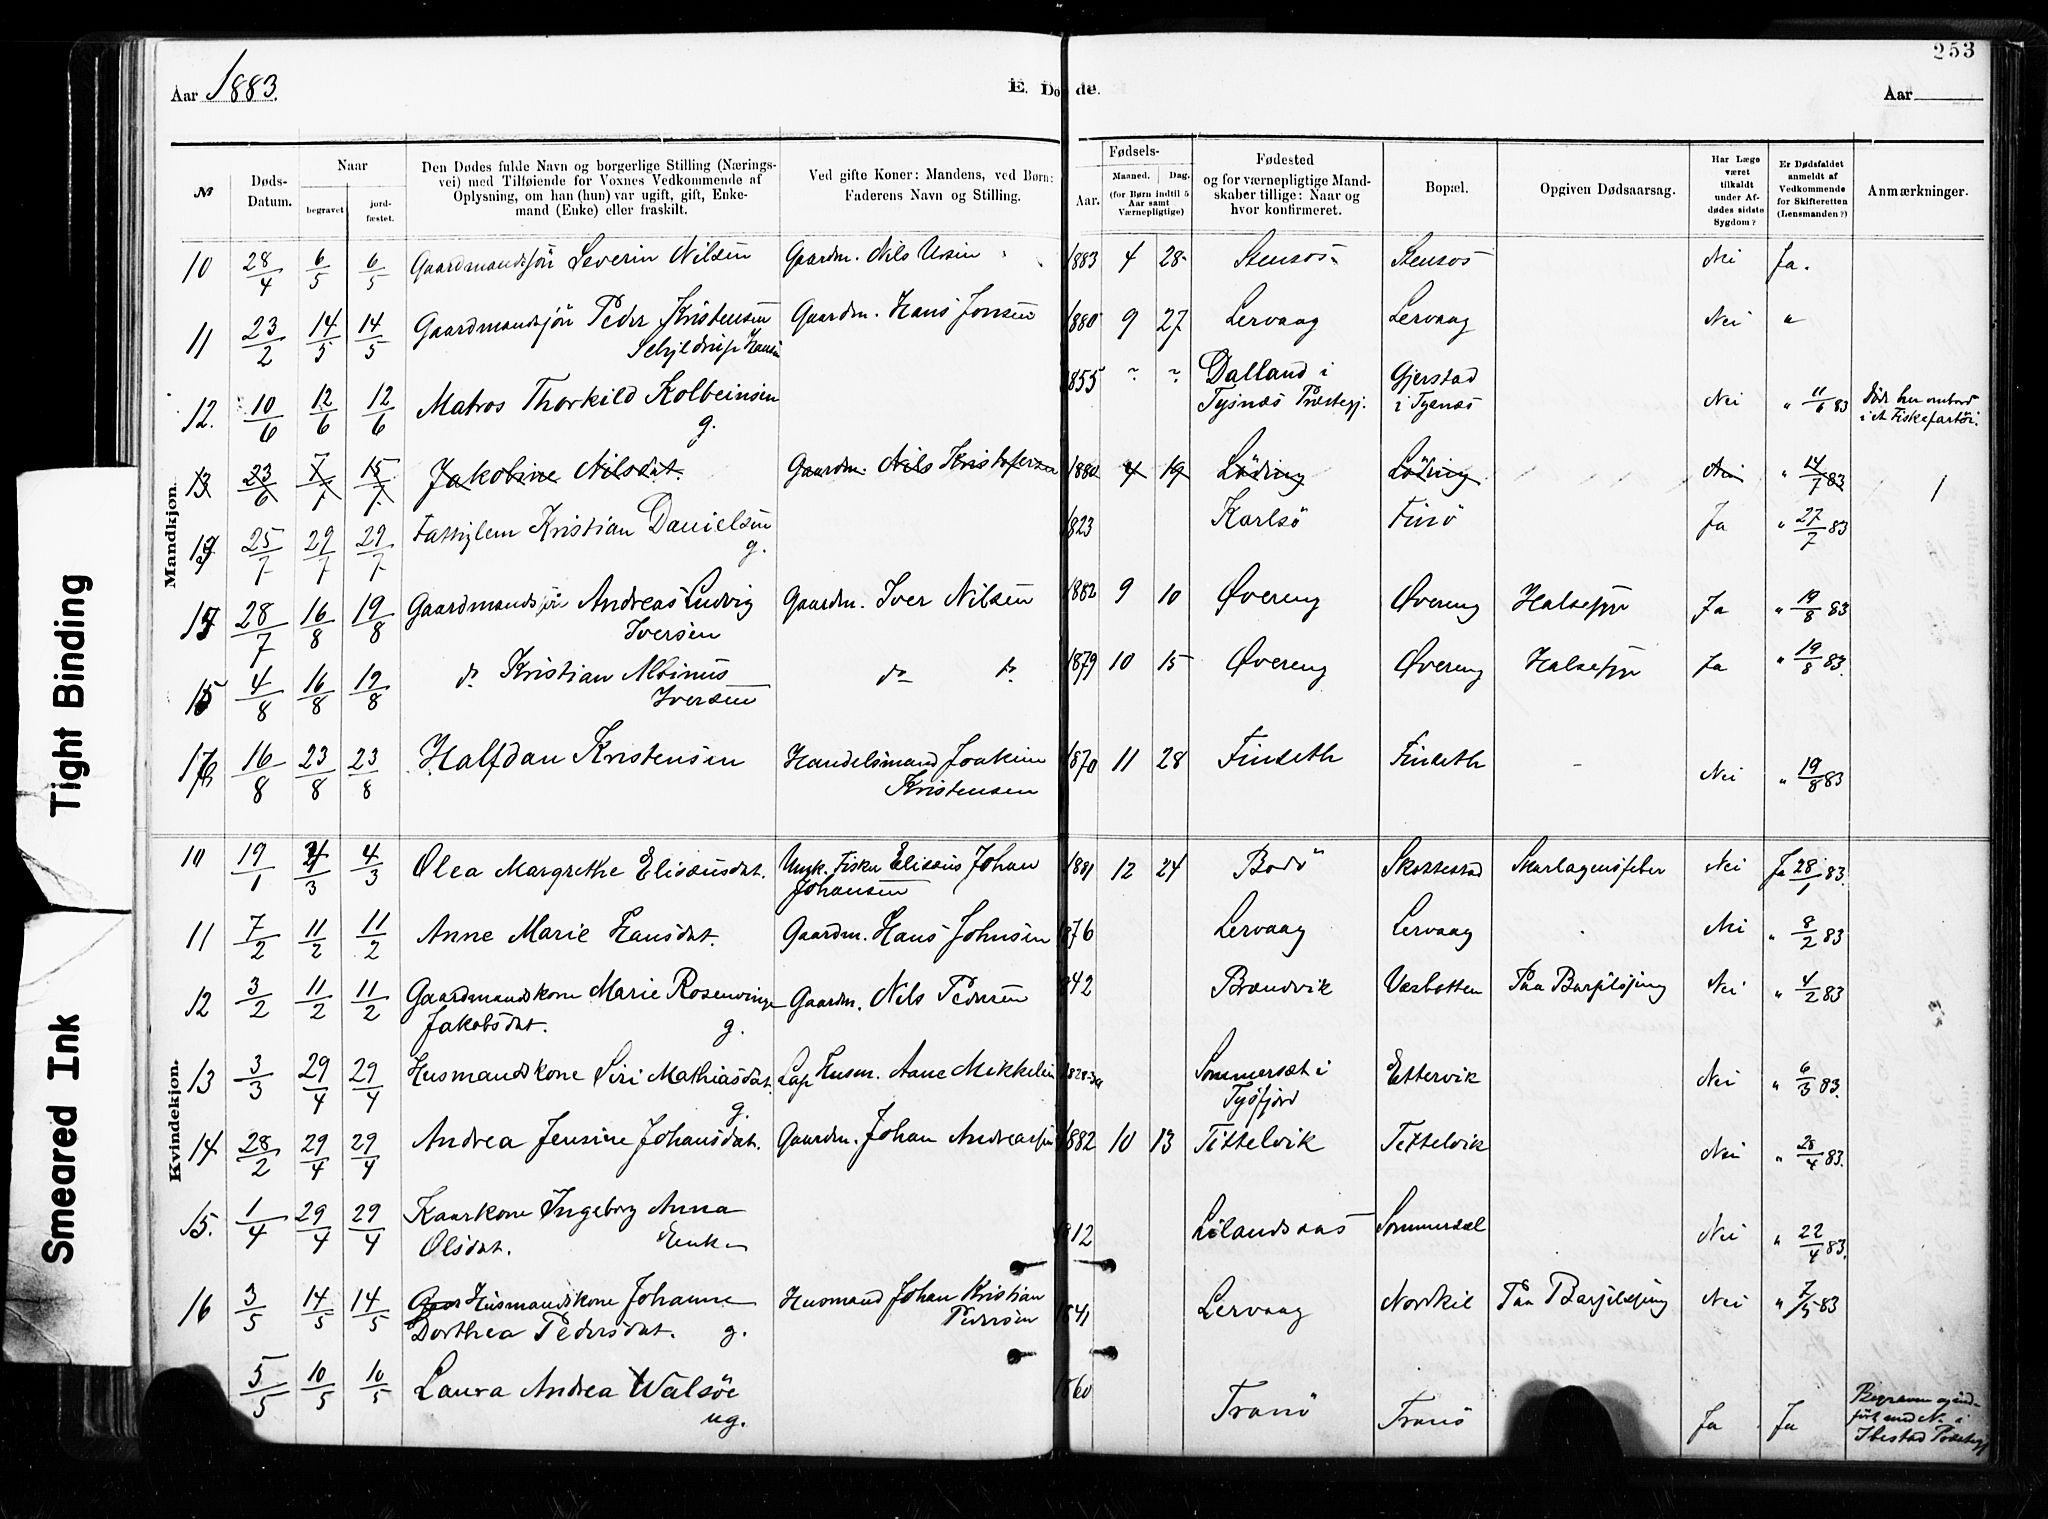 253
Aar 1883.
E. Døde.
Aar
№
Døds-Datum.
Naar
begravet
jord-fæstet.
Den Dødes fulde Navn og borgerlige Stilling (Nærings-
vei) med Tilføiende for Voxnes Vedkommende af
Oplysning, om han (hun) var ugift, gift, Enke-
mand (Enke) eller fraskilt.
Ved gifte Koner: Mandens, ved Børn:
Faderens Navn og Stilling.
Aar.
Fødsels-
Maaned. Dag.
(for Børn indtil 5
Aar samt
Værnepligtige)
Fødested
og for værnepligtige Mand-
skaber tillige: Naar og
hvor konfirmeret.
Bopæl.
Opgiven Dødsaarsag.
Har Læge
været
tilkaldt
under Af-
dødes sidste
Sygdom?
Er Dødsfaldet
anmeldt af
Vedkommende
for Skifteretten
(Lensmanden?)
Anmærkninger.
Mandkjøn.
10 28/4 6/5 6/5 Gaardmandssön Severin Nilsen Gaardm. Nils Ursin 1883 4 28 Stensos Stensos Nei Ja.
11 23/2 14/5 14/5 Gaardmandssön Peder Kristensen Gaardm. Hans Jonsen 1880 9 27 Lervaag Lervaag Nei "
Schjeldrup Hansen
12. 10/6 12/6 12/6 Matros Thorkild Kolbeinsen 1855 ? ? Dalland i Gjerstad Nei " 11/6 83
g. Tysnæs Præstegj. i Tysnæs i et Fiskefartöi.
13 23/6 7/7 15/7 Jakobine Nilsdat. Gaardm. Nils Kristofersen 1880 4 19 Löding Löding Nei " 14/7 83
25/7 29/7 29/7 Fattiglem Kristian Danielsen 1823 Karlsö Finö Ja " 27/7 83
g.
28/7 16/8 19/8 Gaardmandssön Andreas Ludvig Gaardm. Iver Nilsen 1882 9 10 Øvereng Øvereng Halsesyge Ja " 19/8 83
Iversen
4/8 16/8 19/8 do Kristian Albinus do do 1879 10 15 Øvereng Øvereng Halsesyge Ja " 19/8 83.
Iversen
16/8 23/8 23/8 Halfdan Kristensen Handelsmand Joakim 1870 11 28 Finseth Finseth Nei " 19/8 83
Kristensen
Kvindekjøn.
10 19/1 4/3 4/3 Olea Margrethe Elisæusdat. Ungk. Fisker Elisæus Johan 1881 12 24 Bodö Skottestad Skarlagensfeber Nei Ja 28/1 83.
Johansen
11 7/2 11/2 11/2 Anne Marie Hansdat. Gaardm. Hans Johnsen 1876 Lervaag Lervaag Nei " 8/2 83
12 3/2 11/2 11/2 Gaardmandskone Marie Rosenvinge Gaardm. Nils Pedersen 1842 Brændvik Vasbotten Paa Barselseng Nei " 4/2 83
Jakobsdat. g.
13 3/3 29/4 29/4 Husmandskone Siri Mathiasdat. Lap Husm. Aane Mikkelsen Sommersæt i Ettervik Nei " 6/3 83.
g. Tysfjord
14 28/2 29/4 29/4 Andrea Jensine Johansdat. Gaardm. Johan Andreassen 1882 10 13 Tittelvik Tittelvik Nei " 28/4 83.
15. 1/4 29/4 29/4 Kaarkone Ingeborg Anna 1812 Lilandsaas Sommersæl Nei " 22/4 83.
Olsdat. Enke
16 3/5 14/5 14/5 Husmandskone Johanne Husmand Johan Kristian 1841 Lervaag Nordkil Paa Barselseng Nei " 7/5 83
Dorthea Pedersdat. g. Pedersen
5/5 10/5 10/5 Laura Andrea Walsöe 1860 Tranö Tranö Ja Ja
ug.
Ibestad Præstegj
Tight Binding
Smeared Ink